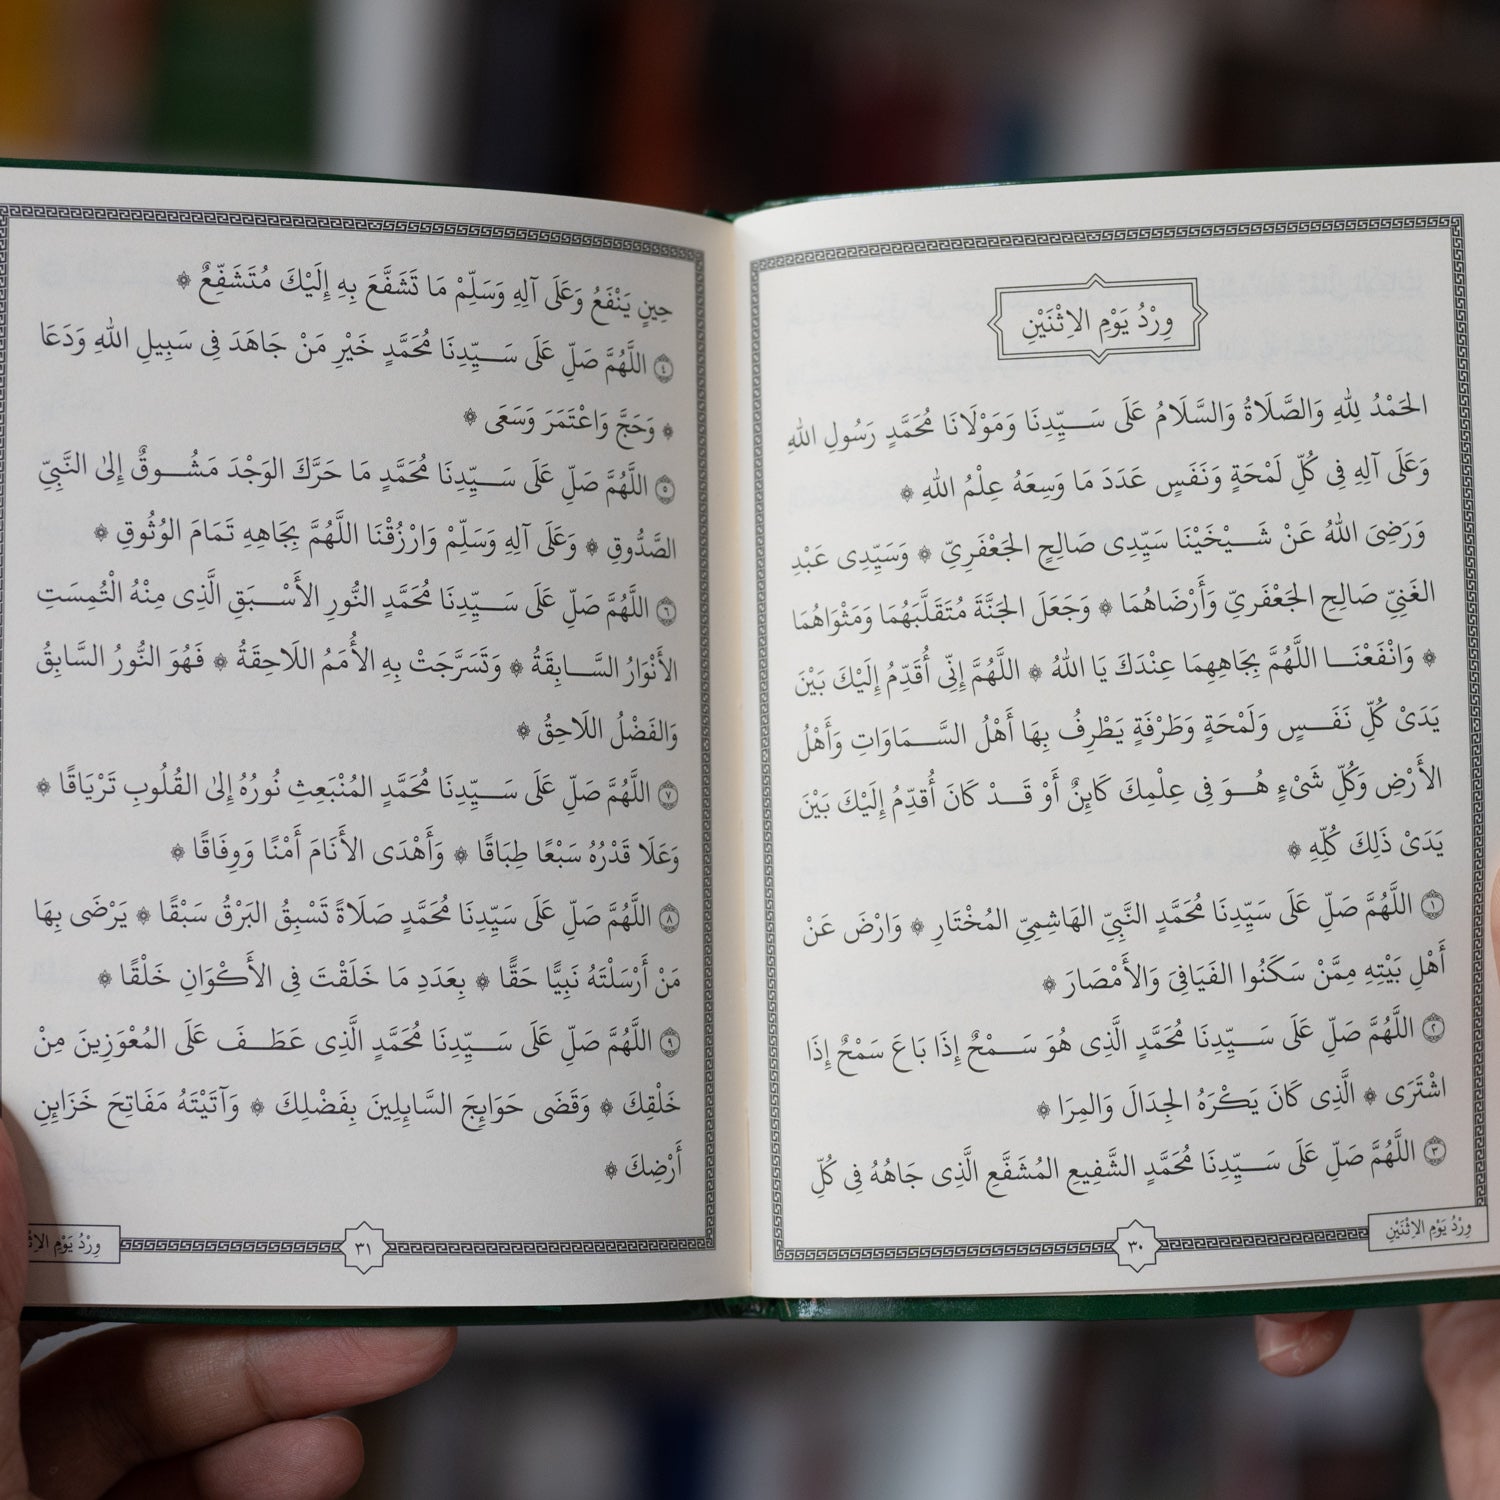 وِرْدُ يَوْمِ الاِثْنَيْنِ
الحَمْدُ لِلهِ وَالصَّلَاةُ وَالسَّلَامُ عَلَى سَيِّدِنَا وَمَوْلَانَا مُحَمَّدٍ رَسُولِ اللهِ
وَعَلَى آلِهِ فِى كُلِّ لَمْحَةٍ وَنَفَسٍ عَدَدَ مَا وَسِعَهُ عِلْمُ اللهِ ۞
وَرَضِىَ اللهُ عَنْ شَيْخَيْنَا سَيِّدِى صَالِحٍ الجَعْفَرِيِّ ۞ وَسَيِّدِى عَبْدِ
الغَنِيِّ صَالِحِ الجَعْفَرِيِّ وَأَرْضَاهُمَا ۞ وَجَعَلَ الجَنَّةَ مُتَقَلَّبَهُمَا وَمَثْوَاهُمَا
۞ وَانْفَعْنَا اللَّهُمَّ بِجَاهِهِمَا عِنْدَكَ يَا اللهُ ۞ اللَّهُمَّ إِنِّى أُقَدِّمُ إِلَيْكَ بَيْنَ
يَدَىْ كُلِّ نَفَسٍ وَلَمْحَةٍ وَطَرْفَةٍ يَطْرِفُ بِهَا أَهْلُ السَّمَاوَاتِ وَأَهْلُ
الأَرْضِ وَكُلِّ شَىْءٍ هُوَ فِى عِلْمِكَ كَائِنٌ أَوْ قَدْ كَانَ أُقَدِّمُ إِلَيْكَ بَيْنَ
يَدَىْ ذَلِكَ كُلِّهِ ۞
١ اللَّهُمَّ صَلِّ عَلَى سَيِّدِنَا مُحَمَّدٍ النَّبِيِّ الهَاشِمِيِّ المُخْتَارِ ۞ وَارْضَ عَنْ
أَهْلِ بَيْتِهِ مِمَّنْ سَكَنُوا الفَيَافِىَ وَالأَمْصَارَ ۞
٢ اللَّهُمَّ صَلِّ عَلَى سَيِّدِنَا مُحَمَّدٍ الَّذِى هُوَ سَمْحٌ إِذَا بَاعَ سَمْحٌ إِذَا
اشْتَرَى ۞ الَّذِى كَانَ يَكْرَهُ الجِدَالَ وَالمِرَا ۞
٣ اللَّهُمَّ صَلِّ عَلَى سَيِّدِنَا مُحَمَّدٍ الشَّفِيعِ المُشَفَّعِ الَّذِى جَاهُهُ فِى كُلِّ
وِرْدُ يَوْمِ الاِثْنَيْنِ
٣٠
حِينٍ يَنْفَعُ وَعَلَى آلِهِ وَسَلِّمْ مَا تَشَفَّعَ بِهِ إِلَيْكَ مُتَشَفِّعٌ ۞
٤ اللَّهُمَّ صَلِّ عَلَى سَيِّدِنَا مُحَمَّدٍ خَيْرِ مَنْ جَاهَدَ فِى سَبِيلِ اللهِ وَدَعَا
۞ وَحَجَّ وَاعْتَمَرَ وَسَعَى ۞
٥ اللَّهُمَّ صَلِّ عَلَى سَيِّدِنَا مُحَمَّدٍ مَا حَرَّكَ الوَجْدَ مَشُوقٌ إِلَىٰ النَّبِيِّ
الصَّدُّوقِ ۞ وَعَلَى آلِهِ وَسَلِّمْ وَارْزُقْنَا اللَّهُمَّ بِجَاهِهِ تَمَامَ الوُثُوقِ ۞
٦ اللَّهُمَّ صَلِّ عَلَى سَيِّدِنَا مُحَمَّدٍ النُّورِ الأَسْبَقِ الَّذِى مِنْهُ الْتُمِسَتِ
الأَنْوَارُ السَّابِقَةُ ۞ وَتَسَرَّجَتْ بِهِ الأُمَمُ اللَاحِقَةُ ۞ فَهُوَ النُّورُ السَّابِقُ
وَالفَضْلُ اللَاحِقُ ۞
٧ اللَّهُمَّ صَلِّ عَلَى سَيِّدِنَا مُحَمَّدٍ المُنْبَعِثِ نُورُهُ إِلَىٰ القُلُوبِ تَرْيَاقًا ۞
وَعَلَا قَدْرُهُ سَبْعًا طِبَاقًا ۞ وَأَهْدَى الأَنَامَ أَمْنًا وَوِفَاقًا ۞
٨ اللَّهُمَّ صَلِّ عَلَى سَيِّدِنَا مُحَمَّدٍ صَلَاةً تَسْبِقُ البَرْقُ سَبْقًا ۞ يَرْضَى بِهَا
مَنْ أَرْسَلْتَهُ نَبِيًّا حَقًّا ۞ بِعَدَدِ مَا خَلَقْتَ فِى الأَكْوَانِ خَلْقًا ۞
٩ اللَّهُمَّ صَلِّ عَلَى سَيِّدِنَا مُحَمَّدٍ الَّذِى عَطَفَ عَلَى المُعْوَزِينَ مِنْ
خَلْقِكَ ۞ وَقَضَى حَوَائِجَ السَّائِلِينَ بِفَضْلِكَ ۞ وَآتَيْتَهُ مَفَاتِحَ خَزَائِنِ
أَرْضِكَ ۞
وِرْدُ يَوْمِ
٣١